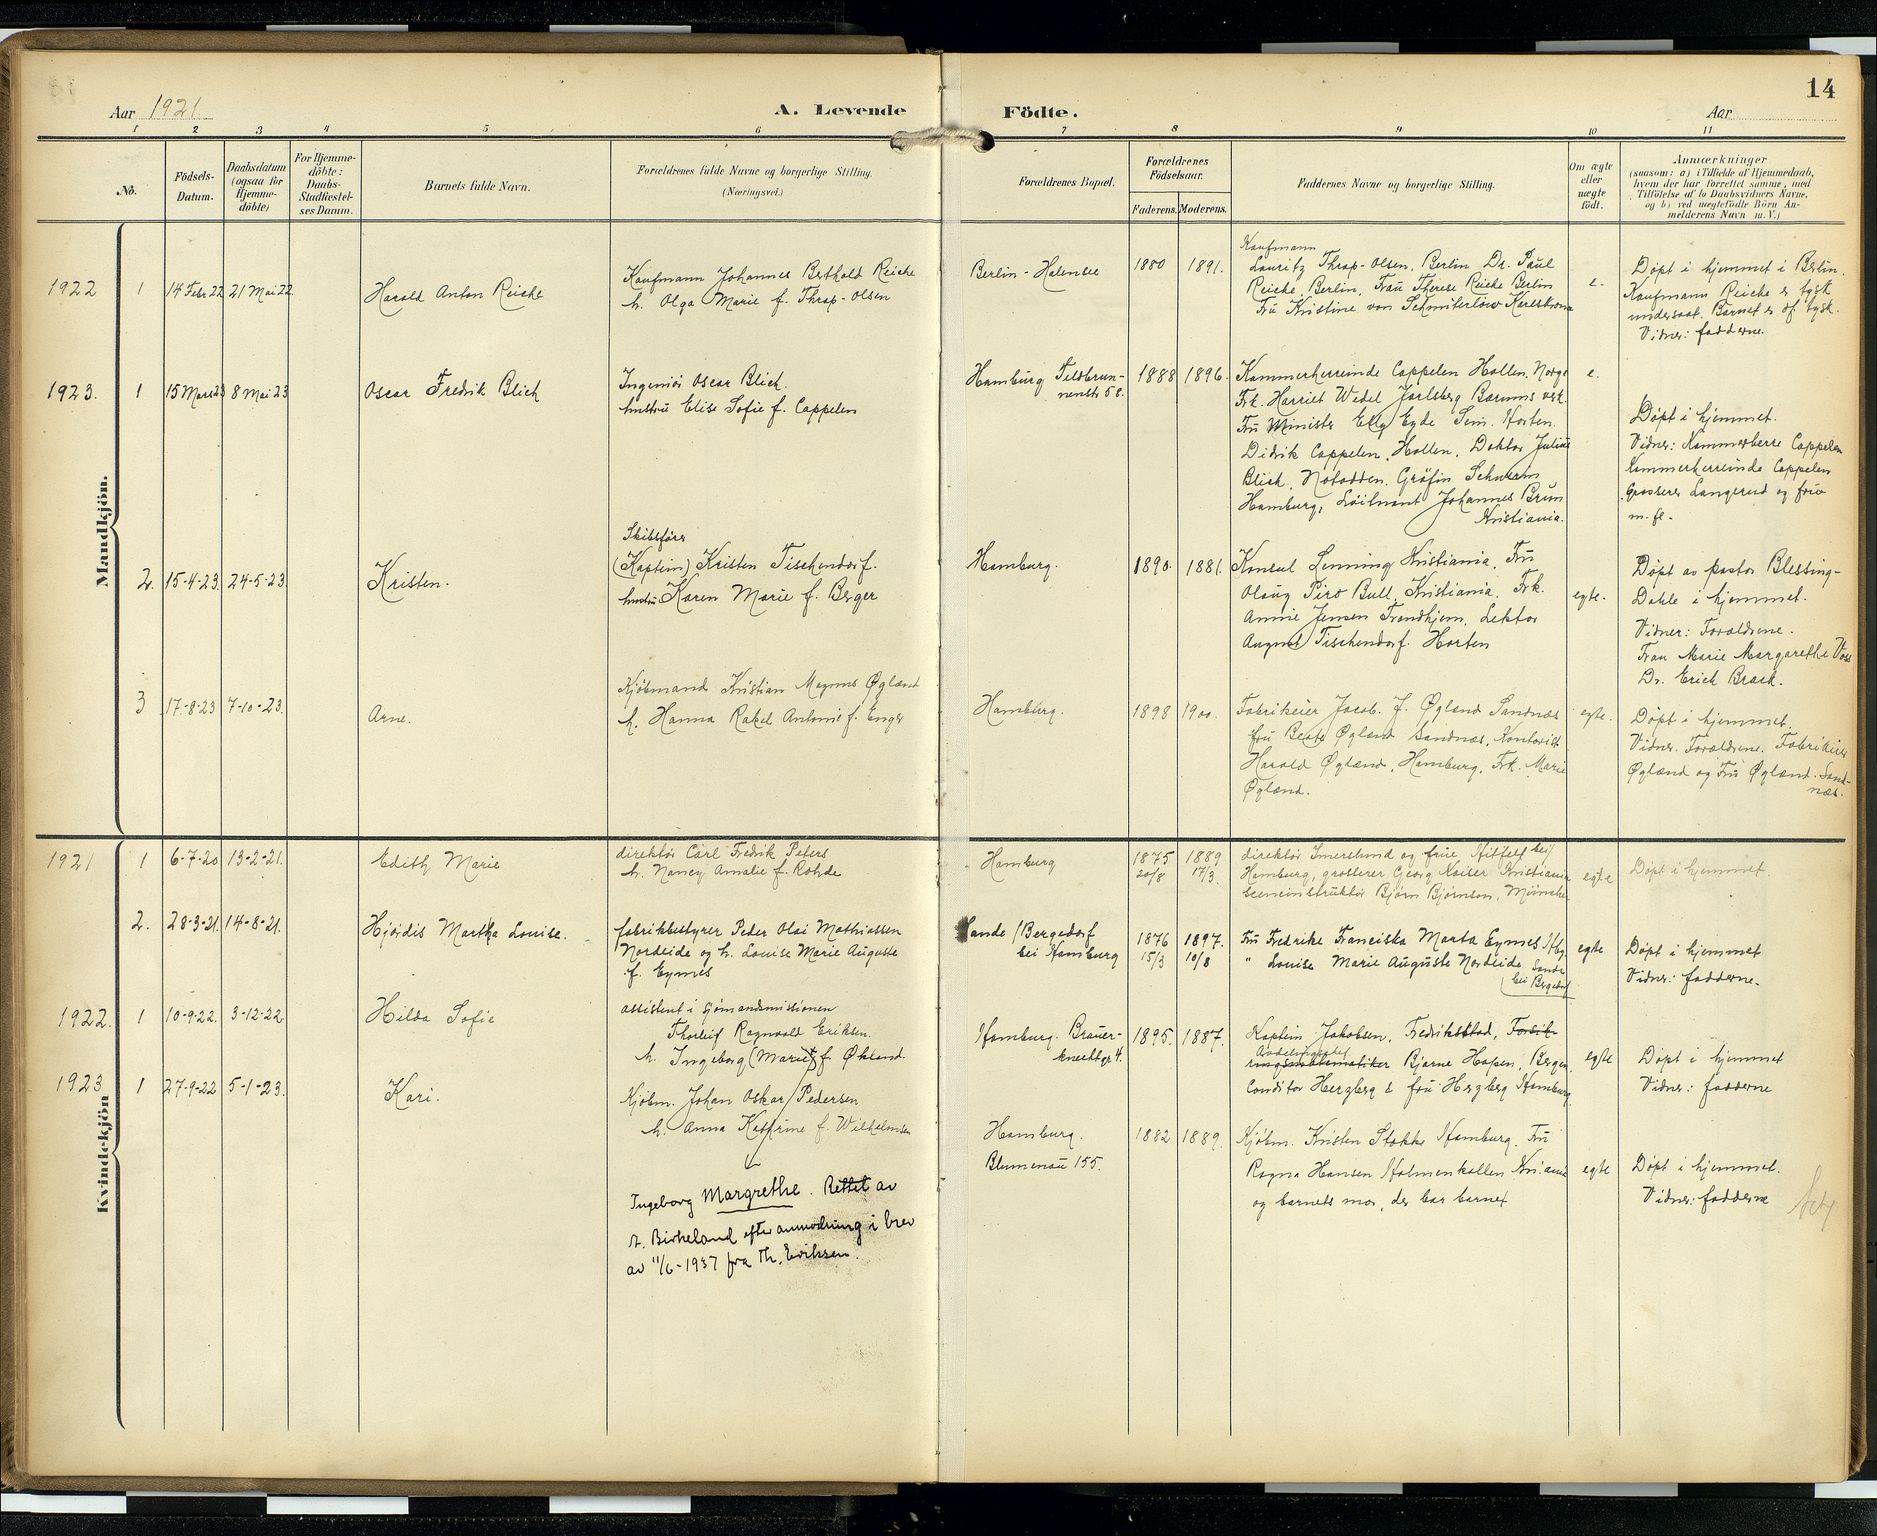 14
Aar 1921
A. Levende Födte.
Aar
1 2 3 4 5 6 7 8 9 10 11
No.
Födsels-
Datum.
Daabsdatum
(ogsaa for
Hjemme-
döbte)
For Hjemme-
döbte:
Daabs-
Stadfæstel-
ses Datum.
Barnets fulde Navn.
Forældrenes fulde Navne og borgerlige Stilling.
(Næringsvei.)
Forældrenes Bopæl.
Forældrenes
Födselsaar.
Faderens. Moderens.
Faddernes Navne og borgerlige Stilling.
Om ægte
eller
uægte
födt.
Anmærkninger
(saasom: a) i Tilfælde af Hjemmedaab,
hvem der har forrettet samme, med
Tilföielse af to Daabsvidners Navne,
og b) ved uægtefödte Börn An-
melderens Navn m. V.)
Mandkjön.
1922 1 14 Febr 22 21 Mai 22
Harald Anton Reiche
Kaufmann Johannes Berthold Reiche
h. Olga Marie f. Thrap-Olsen
Berlin-Halensee
1880 1891.
Kaufmann
Lauritz Thrap-Olsen, Berlin Dr. Paul
Reiche, Berlin, Frau Therese Reiche Berlin
Fru Kristine von Schmiterløw Karlskrona
e.
Døpt i hjemmet i Berlin.
Kaufmann Reiche er tysk
undersaat. Barnet er of. tysk.
Vidner: fadderne.
1923. 1 15 Mars 23 8 Mai 23
Oscar Fredrik Blich
Ingeniør Oscar Blich.
hustru Elise Sofie f. Cappelen
Hamburg Feldbrun-
nenstr 58.
1888 1896.
Kammerherreinde Cappelen Hollen, Norge
Frk. Harriet Wedel Jarlsberg Bærums verk.
Fru Minister Elly Eyde Sem. Horten.
Didrik Cappelen, Hollen, Doktor Julius
Blich, Notodden. Gräfin Schwerin
Hamburg, Løitnant Johannes Brun
Kristiania.
e.
Døpt i hjemmet.
Vidner: Kammerherre Cappelen
Kammerherreinde Cappelen
Grosserer Langerud og frue
m. fl.
2. 15-4-23. 24-5-23.
Kristen.
Skibsfører
(Kaptein) Kristen Tischendorf.
hustru Karen Marie f. Berger
Hamburg.
1890. 1881.
Konsul Lenning Kristiania, Fru
Olaug Piro Bull, Kristiania, Frk.
Annie Jensen Trondhjem, Lektor
August Tischendorf. Horten
egte.
Døpt av pastor Blessing-
Dahle i hjemmet.
Vidner: Forældrene.
Frau Marie Margarethe Voss
Dr. Erich Brach.
3 17-8-23 7-10-23.
Arne.
Kjøbmand Kristian Magnus Øgland
h. Hanna Rakel Antonie f. Enger
Hamburg.
1898 1900.
Fabrikeier Jacob. J. Øgland Sandnæs
fru Berte Øgland Sandnæs, Kontorist
Harald Øgland, Hamburg, Frk. Marie
Øgland.
egte.
Døpt i hjemmet.
Vidner. Forældrene. Fabrikeier
Øgland og Fru Øgland. Sand-
næs.
Kvindekjön
1921 1 6-7-20 13-2-21.
Edith Marie
direktør Carl Fredrik Peters
h. Nancy Amalie f. Rohde
Hamburg
1875 1889
20/8 17/3.
direktør Imerslund og frue, bei
Hamburg, grosserer Georg Kaiser Kristiania
Sceneinstruktør Bjørn Bjørnson, München
egte
Døpt i hjemmet.
2. 28-3-21. 14-8-21.
Hjørdis Martha Louise.
fabrikbestyrer Peder Olai Mathiassen
Nordeide og h. Louise Marie Auguste
f. Eymes
Sande/Bergedorf
bei Hamburg
1876 1897.
15/3 10/8
Fru Fredrike Franciska Marta Eymes Hbg
" Louise Marie Auguste Nordeide Sande
bei Bergedorf
egte
Døpt i hjemmet
Vidner: fadderne.
1922. 1 10-9-22. 3-12-22.
Hilda Sofie
assistent i sjømandsmissionen
Thorleif Ragnvald Eriksen.
h. Ingeborg (Marie) f. Økland.
Hamburg. Brauer-
knechtgr. 4.
1895. 1887.
Kaptein Jakobsen, Fredrikstad,
Bjarne Hopen, Bergen,
Conditor Herzberg & fru Herzberg Hamburg.
egte
Døpt i hjemmet
Vidner: fadderne
1923 1 27-9-22 5-1-23.
Kari.
Kjøbm. Johan Oskar Pedersen
h. Anna Kathrine f. Wilhelmsen
Hamburg.
Blumenau 155.
1882 1889.
Kjøbm. Kristen Stokke Hamburg. Fru
Ragna Hansen Holmenkollen Kr.iania
og barnets mor, der bar barnet
egte
Døpt i hjemmet.
Vidner: fadderne
Ingeborg Margrethe. Rettet av
A. Birkeland efter anmodning i brev
av 11/6-1937 fra Th. Eriksen.